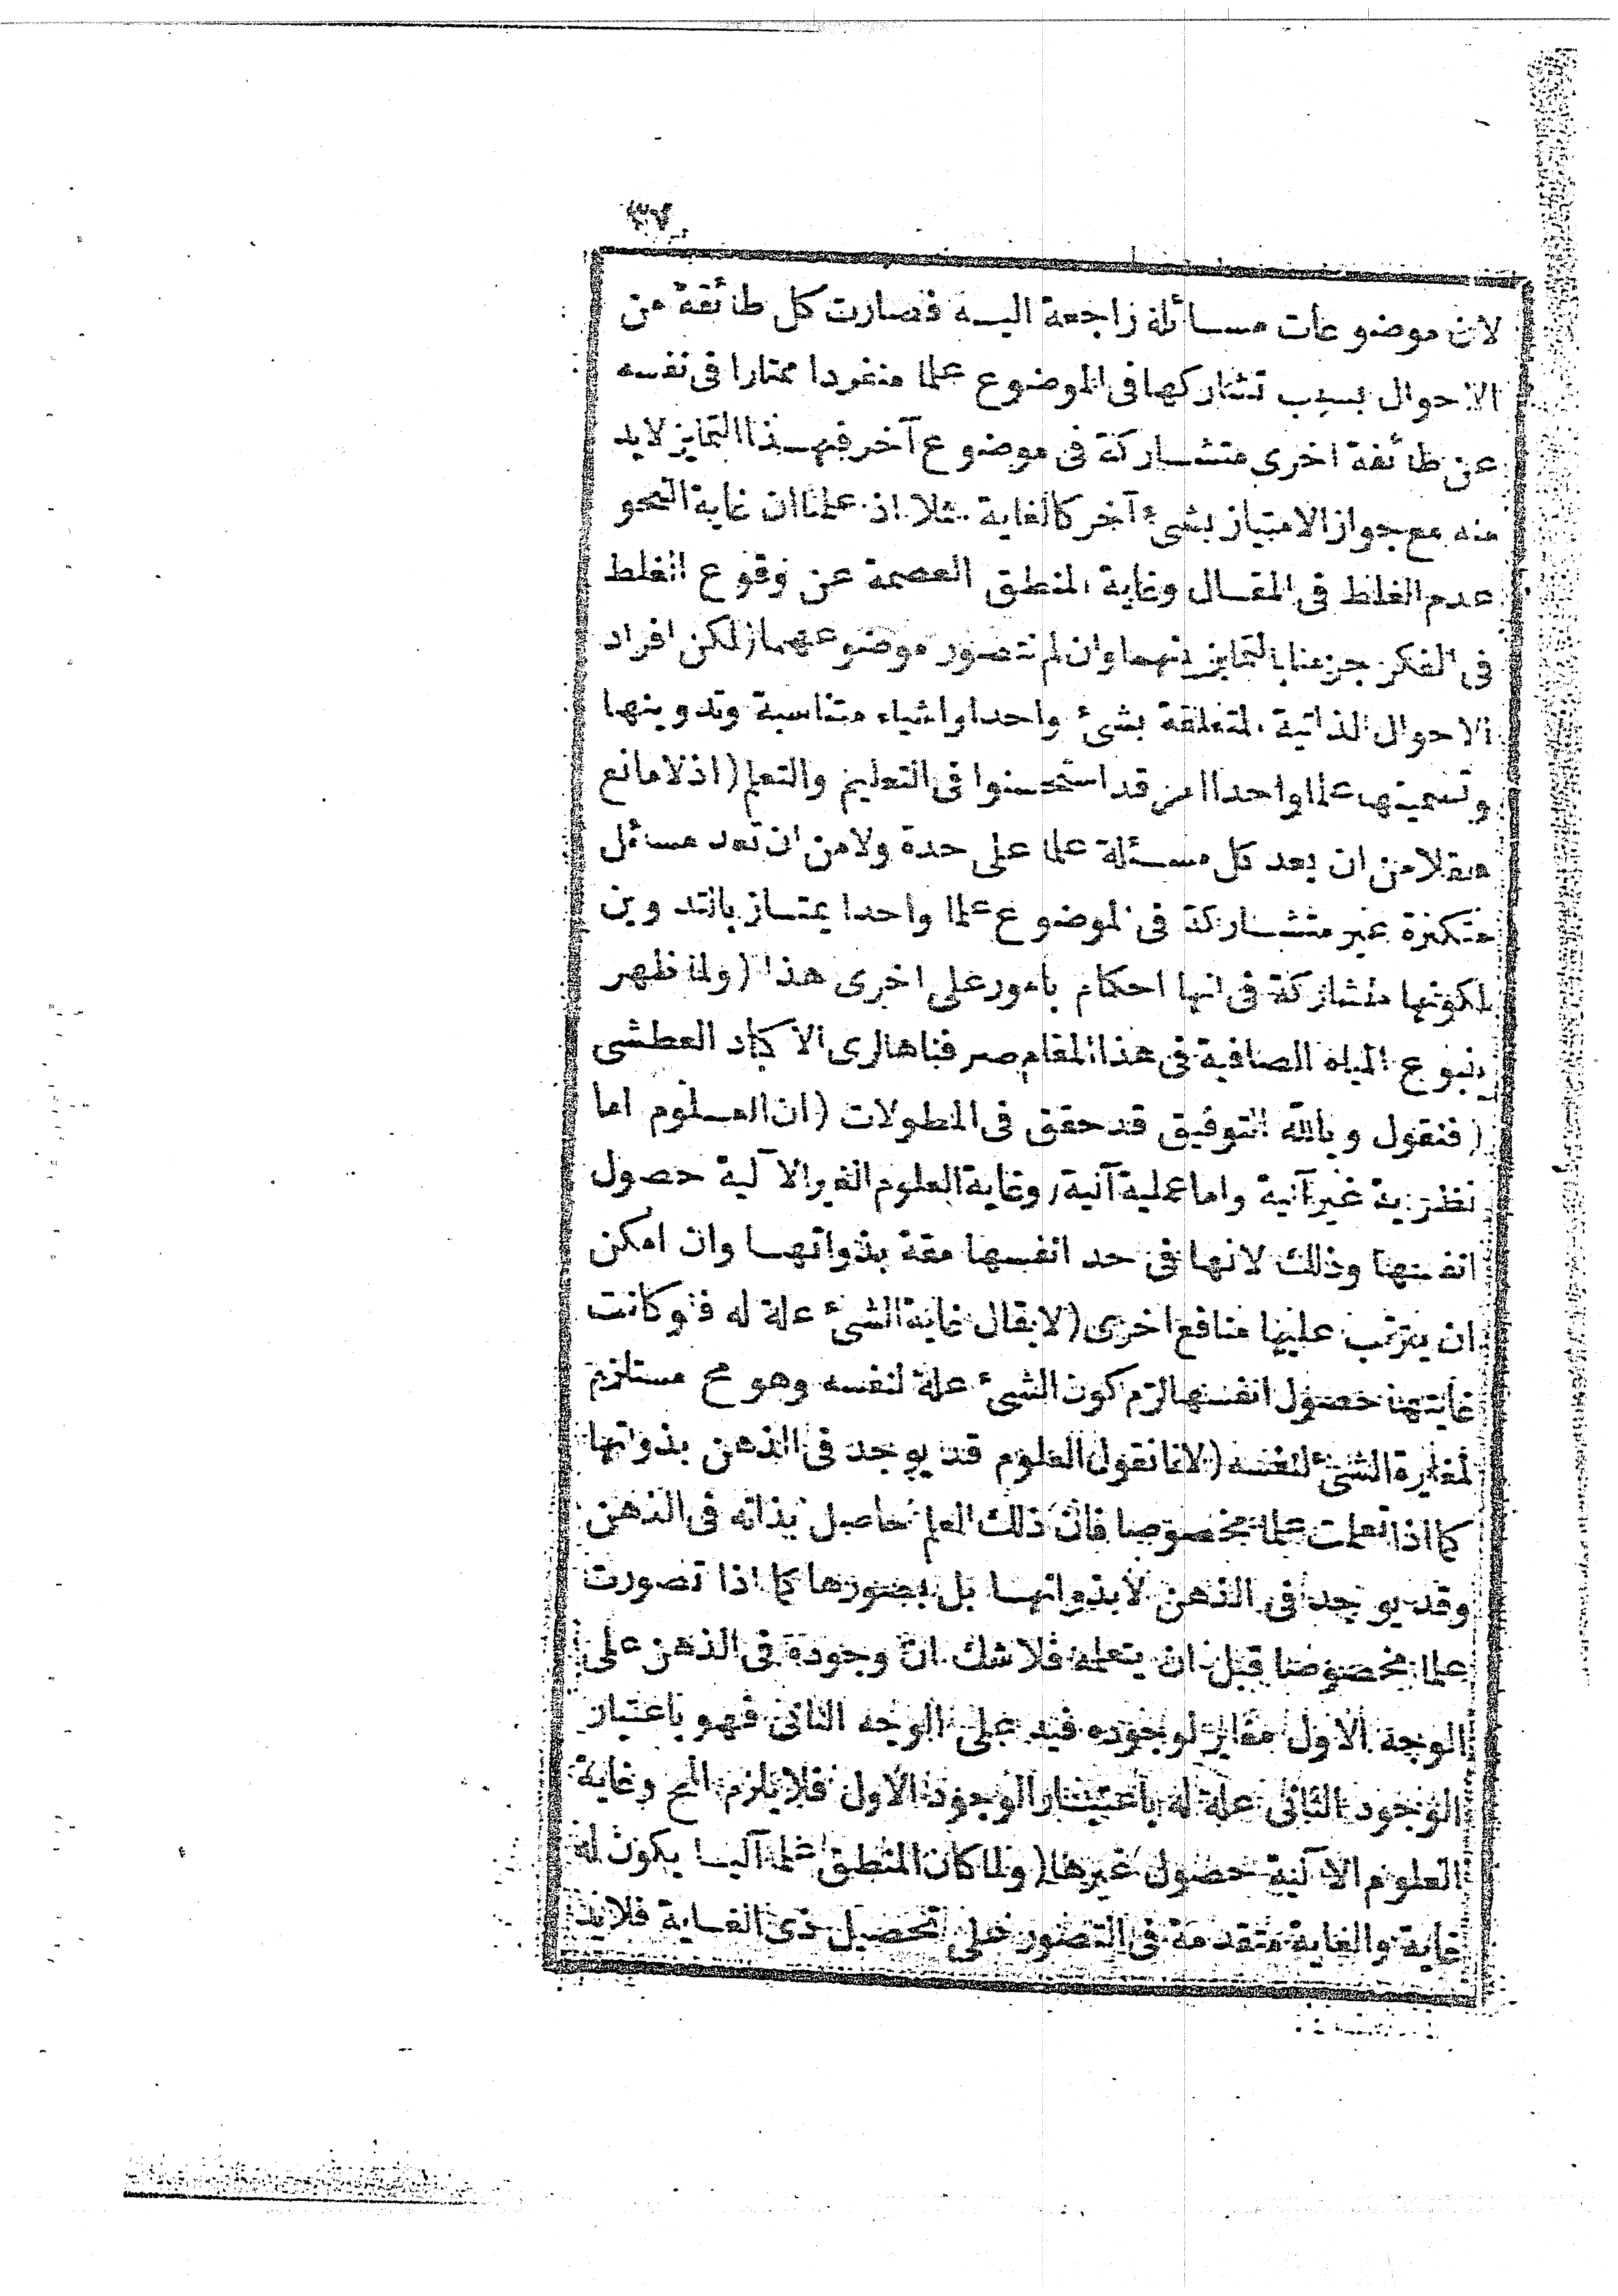 ﴿٣٧﴾
لان موضوعات مسائله راجعة اليه فصارت كل طائفة من
الاحوال بسبب تشاركها فى الموضوع علما منفردا ممتازا فى نفسه
عن طائفة اخرى متشاركة فى موضوع آخر فهذا التمايز لابد
منه مع جواز الامتياز بشئ آخر كالغاية مثلا اذ علمنا ان غاية النحو
عدم الغلط فى المقال وغاية المنطق العصمة عن وقوع الغلط
فى الفكر جزمنا بالتمايز بينهما وان لم نتصور موضوعهما لكن افراد
الاحوال الذاتية المتعلقة بشئ واحد او اشياء متناسبة وتدوينها
وتسميتها علما واحدا امر قد استحسنوا فى التعليم والتعلم (اذ لا مانع
عقلا من ان يعد كل مسئلة علما على حدة ولا من ان تعد مسائل
متكثرة غير متشاركة فى الموضوع علما واحدا يمتاز بالتدوين
لكونها متشاركة فى انها احكام بامور على اخرى هذا (ولما ظهر
ينبوع المياه الصافية فى هذا المقام صرفناها لرى الاكباد العطشى
(فنقول وبالله التوفيق قد حقق فى المطولات (ان العلوم اما
نظرية غير آلية واما عملية آلية وغاية العلوم الغير الآلية حصول
انفسها وذلك لانها فى حد انفسها مقة بذواتها وان امكن
ان يترتب عليها منافع اخرى (لا يقال غاية الشئ علة له فلو كانت
غايتها حصول انفسها لزم كون الشئ علة لنفسه وهو مح مستلزم
لمغايرة الشئ لنفسه (لانا نقول العلوم قد يوجد فى الذهن بذواتها
كما اذا تعلمت علما مخصوصا فان ذلك العلم حاصل بذاته فى الذهن
وقد يوجد فى الذهن لا بذواتها بل بصورها كما اذا تصورت
علما مخصوصا قبل ان يتعلمه فلا شك ان وجوده فى الذهن على
الوجه الاول مغاير لوجوده فيه على الوجه الثانى فهو باعتبار
الوجود الثانى علة له باعتبار الوجود الاول فلا يلزم المح وغاية
العلوم الآلية حصول غيرها (ولما كان المنطق علما آليا يكون له
غاية والغاية متقدمة فى التصور على تحصيل ذى الغاية فلابد